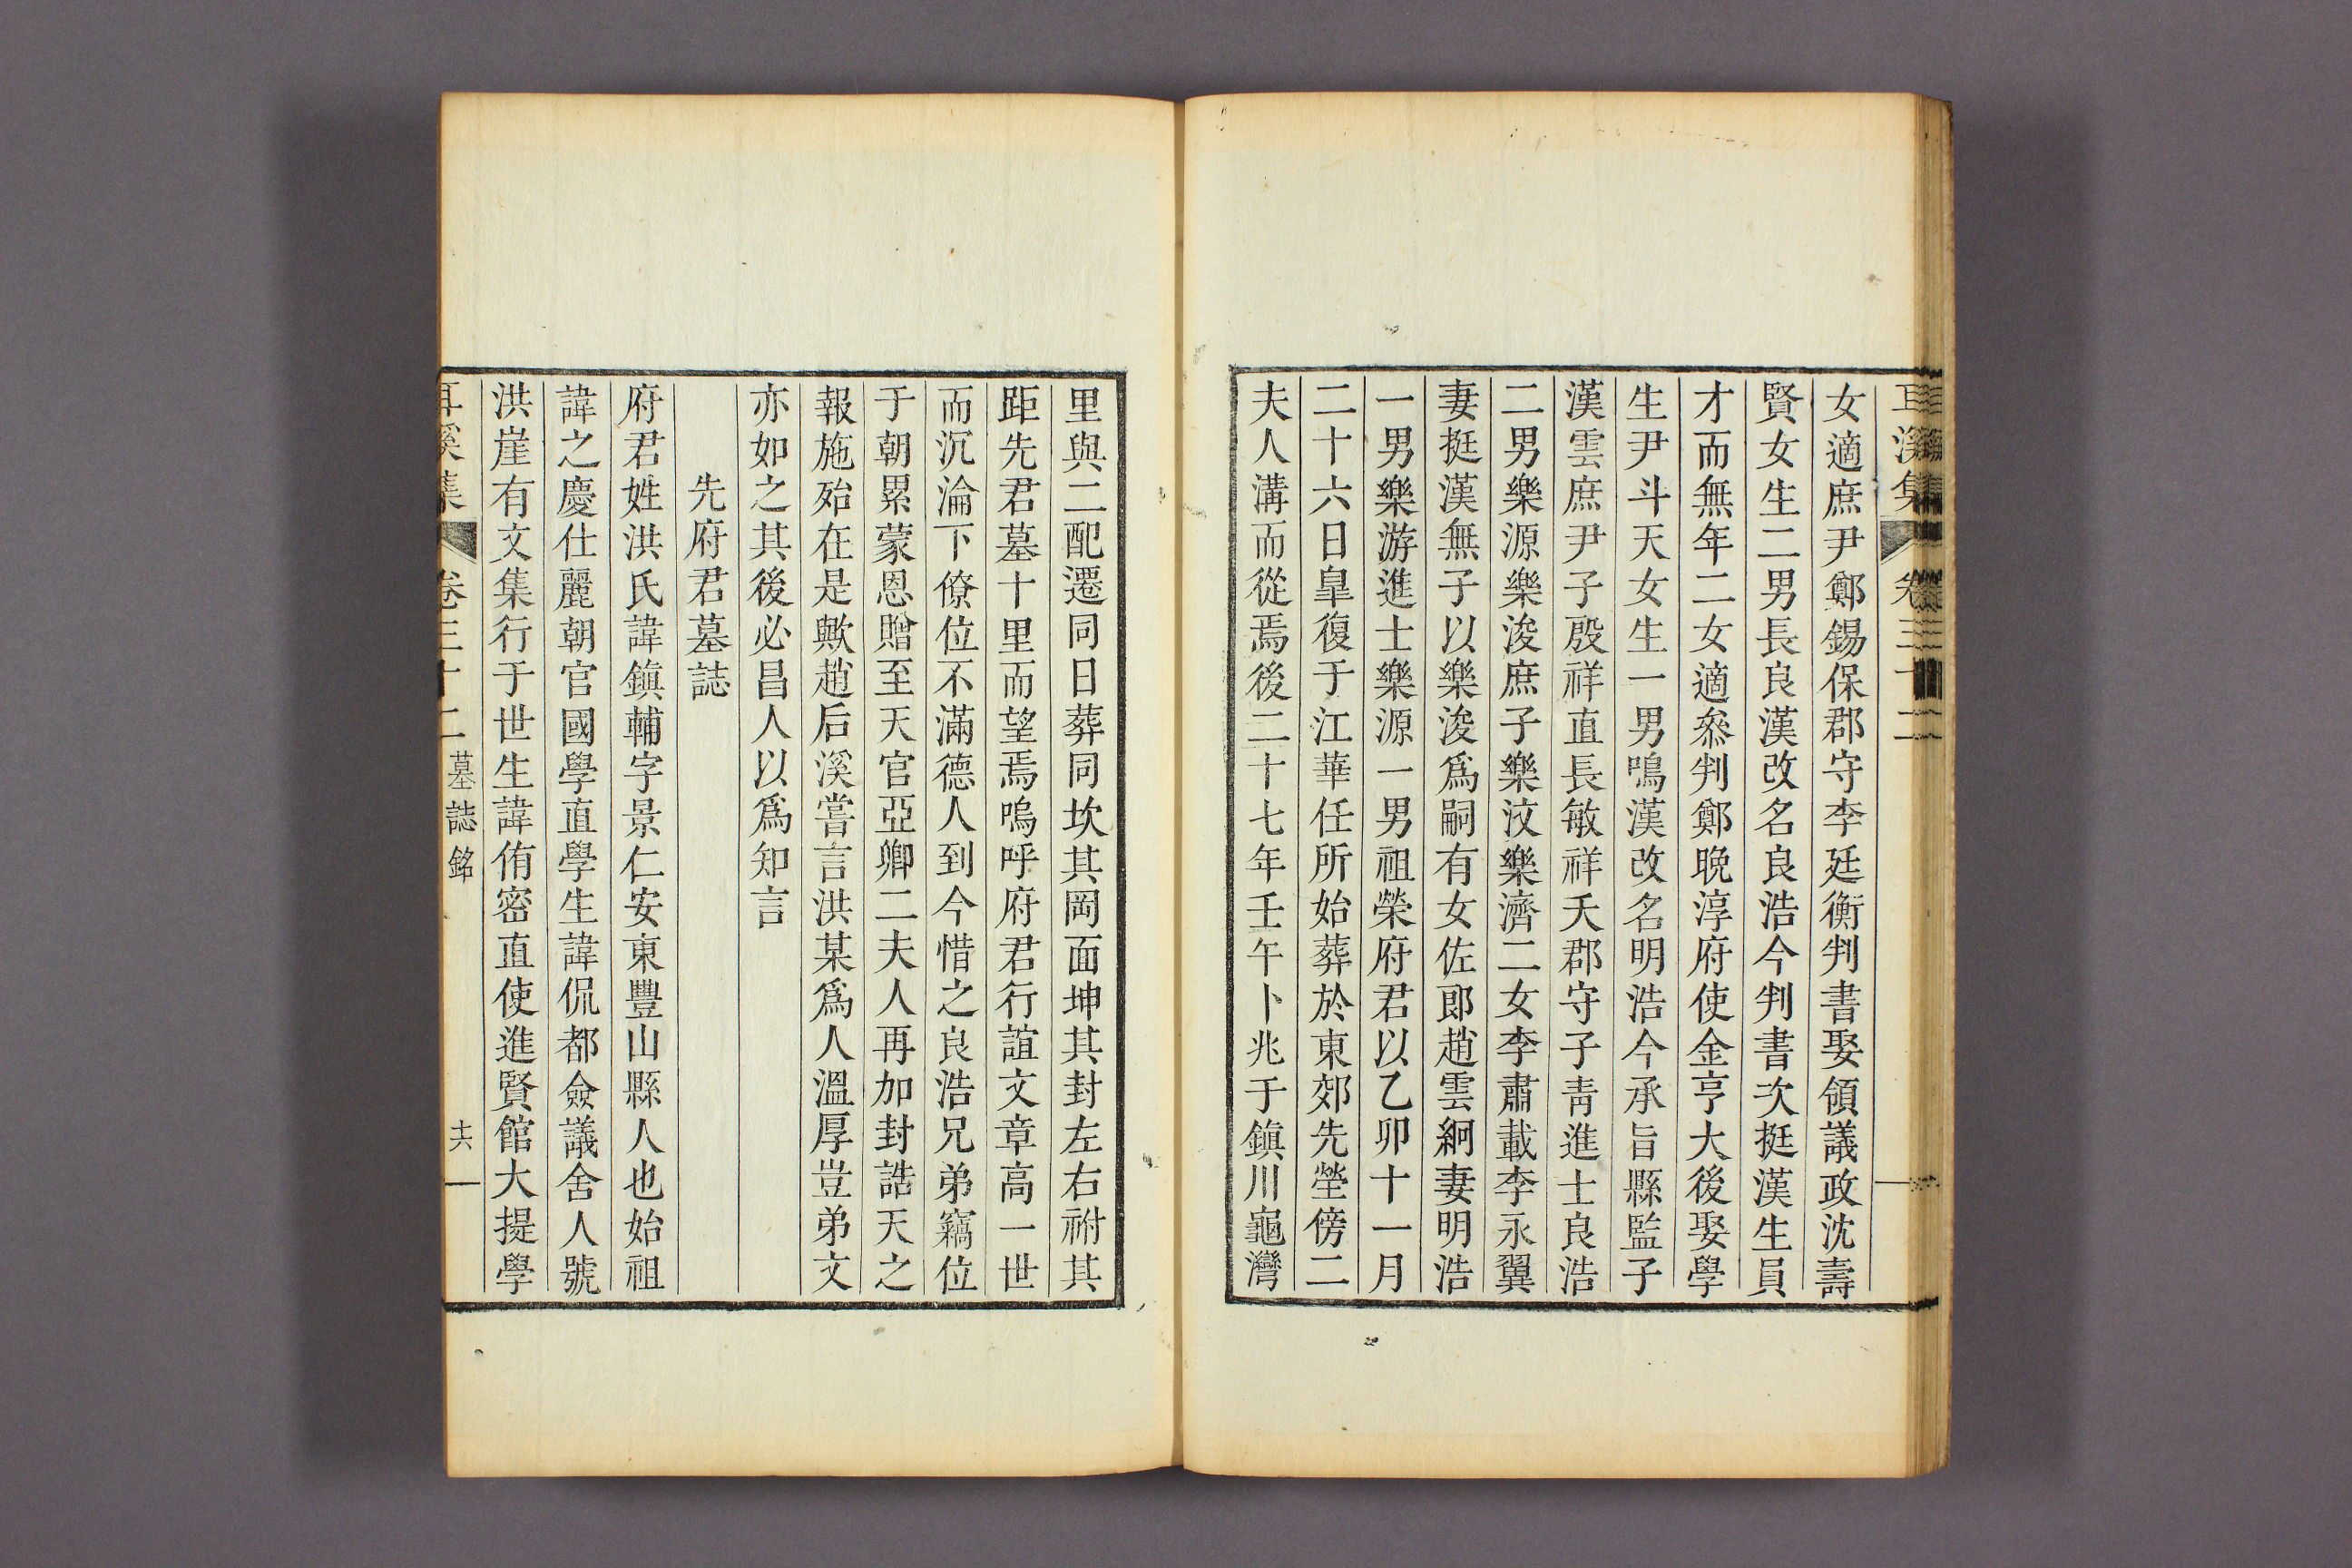 女適庶尹鄭錫保郡守李廷衡判書娶領議政沈壽
賢女生二男長良漢改名良浩今判書次挺漢生員
才而無年二女適叅判鄭晚淳府使金亨大後娶學
生尹斗天女生一男鳴漢改名明浩今承旨縣監子
漢雲庶尹子殷祥直長敏祥夭郡守子青進士良浩
二男樂源樂浚庶子樂汶樂濟二女李肅載李永翼
妻挺漢無子以樂浚爲嗣有女佐郎趙雲絅妻明浩
一男樂游進士樂源一男祖榮府君以乙卯十一月
二十六日皐復于江華任所始葬於東郊先塋傍二
夫人溝而從焉後二十七年壬午卜兆于鎮川龜灣
里與二配遷同日葬同坎其岡面坤其封左右祔其
距先君墓十里而望焉嗚呼府君行誼文章高一世
而沉淪下僚位不滿德人到今惜之良浩兄弟竊位
于朝累蒙恩贈至天官亞卿二夫人再加封誥天之
報施殆在是歟趙后溪嘗言洪某爲人溫厚豈弟文
亦如之其後必昌人以爲知言
先府君墓誌
府君姓洪氏諱鎮輔字景仁安東豐山縣人也始祖
諱之慶仕麗朝官國學直學生諱侃都僉議舍人號
洪崖有文集行于世生諱侑密直使進賢館大提學
耳溪集 卷三十二 墓誌銘 十六